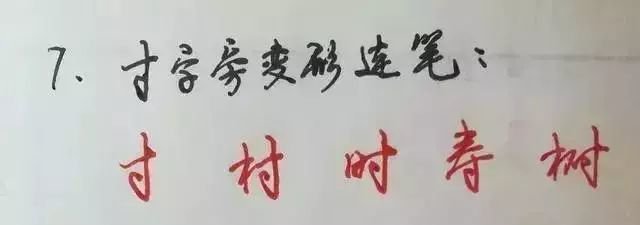 7、寸字旁变形连笔：
寸 村 时 寿 树